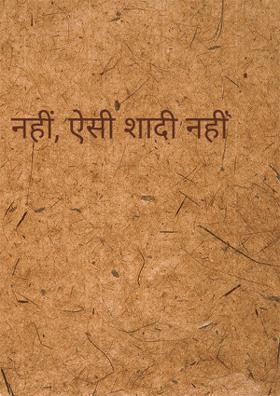 नहीं, ऐसी शादी नहीं